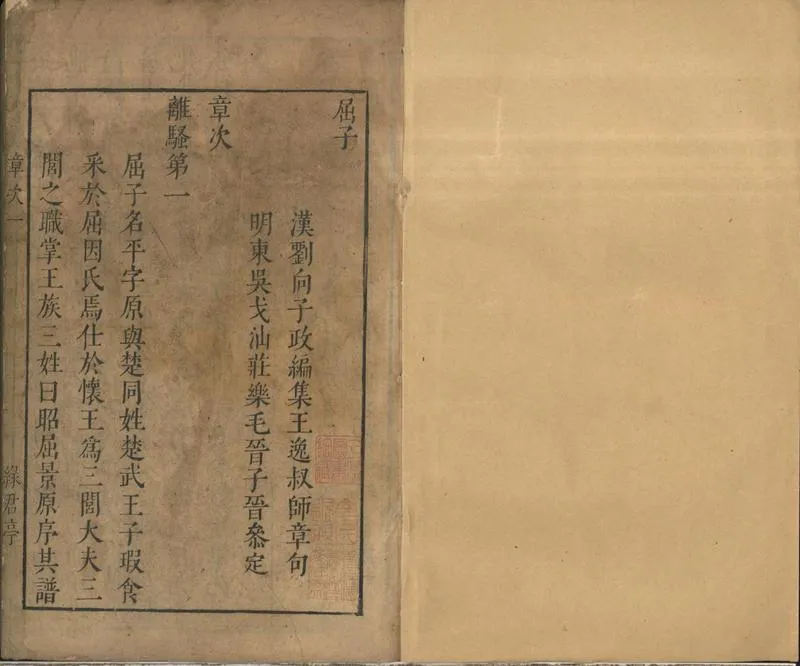 屈子
漢劉向子政編集王逸叔師章句
明東吳戈汕莊樂毛晉子晉叅定
章次
離騷第一
屈子名平字原與楚同姓楚武王子瑕食
采於屈因氏焉仕於懷王爲三閭大夫三
閭之職掌王族三姓曰昭屈景原序其譜
章次一
綠君亭